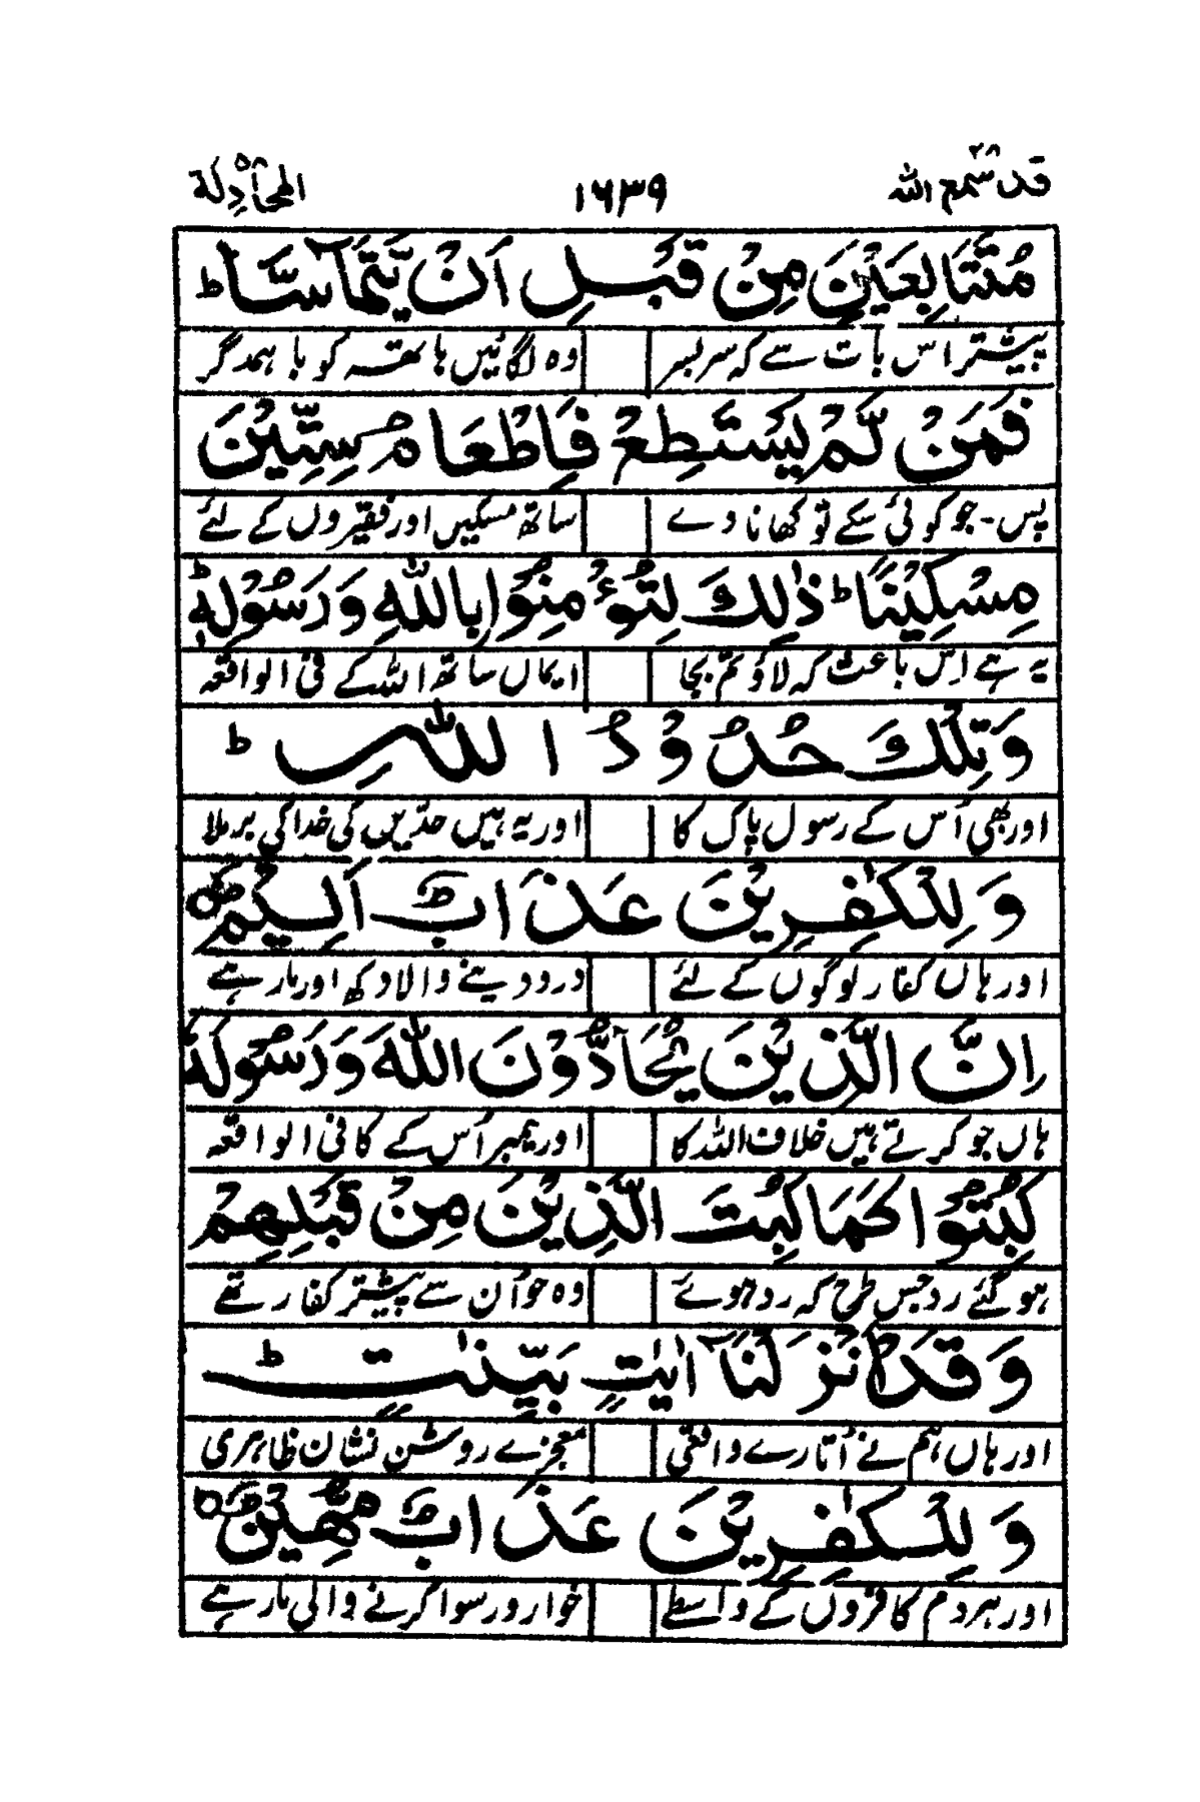 قد سمع الله ٢٨ ١٦٣٩ المجادلة ٥٨
مُتَتَابِعَيْنِ مِنْ قَبْلِ اَنْ يَّتَمَآسَّا ط
پیشتر اس بات سے کہ سربسر وہ لگائیں ہاتھ کو باہمدگر
فَمَنْ لَّمْ يَسْتَطِعْ فَاِطْعَامُ سِتِّيْنَ
پس۔ جو کوئی سکے تو کھانا دے ساٹھ مسکیں اور فقیروں کے لئے
مِسْكِيْنًا ط ذٰلِكَ لِتُؤْمِنُوْا بِاللّٰهِ وَرَسُوْلِهٖ ط
یہ ہے اس باعث کہ لاؤ تم بجا ایماں ساتھ اللہ کے فی الواقعہ
وَتِلْكَ حُدُوْدُ اللّٰهِ ط
اور بھی اُس کے رسول پاک کا اور یہ ہیں حدّیں کی خدا کی برملا
وَلِلْكٰفِرِيْنَ عَذَابٌ اَلِيْمٌ ○
اور ہاں کفار لوگوں کے لئے درد دینے والا دکھ اور مار ہے
اِنَّ الَّذِيْنَ يُحَآدُّوْنَ اللّٰهَ وَرَسُوْلَهٗ
ہاں جو کرتے ہیں خلاف اللہ کا اور پیمبر اُس کے کا فی الواقعہ
كُبِتُوْا كَمَا كُبِتَ الَّذِيْنَ مِنْ قَبْلِهِمْ
ہو گئے رد جس طرح کہ رد ہوئے وہ جو اُن سے پیشتر کفار تھے
وَقَدْ اَنْزَلْنَآ اٰيٰتٍۭ بَيِّنٰتٍ ط
اور ہاں ہم نے اُتارے واقعی معجزے روشن نشان ظاہری
وَلِلْكٰفِرِيْنَ عَذَابٌ مُّهِيْنٌ ○
اور ہردم کافروں کے واسطے خوار و رسوا کرنے والی مار ہے